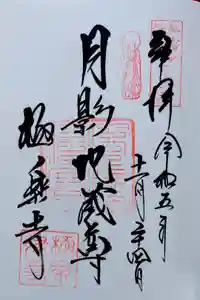 奉拝 令和五年
十一月二十四日
月影地蔵尊
極楽寺